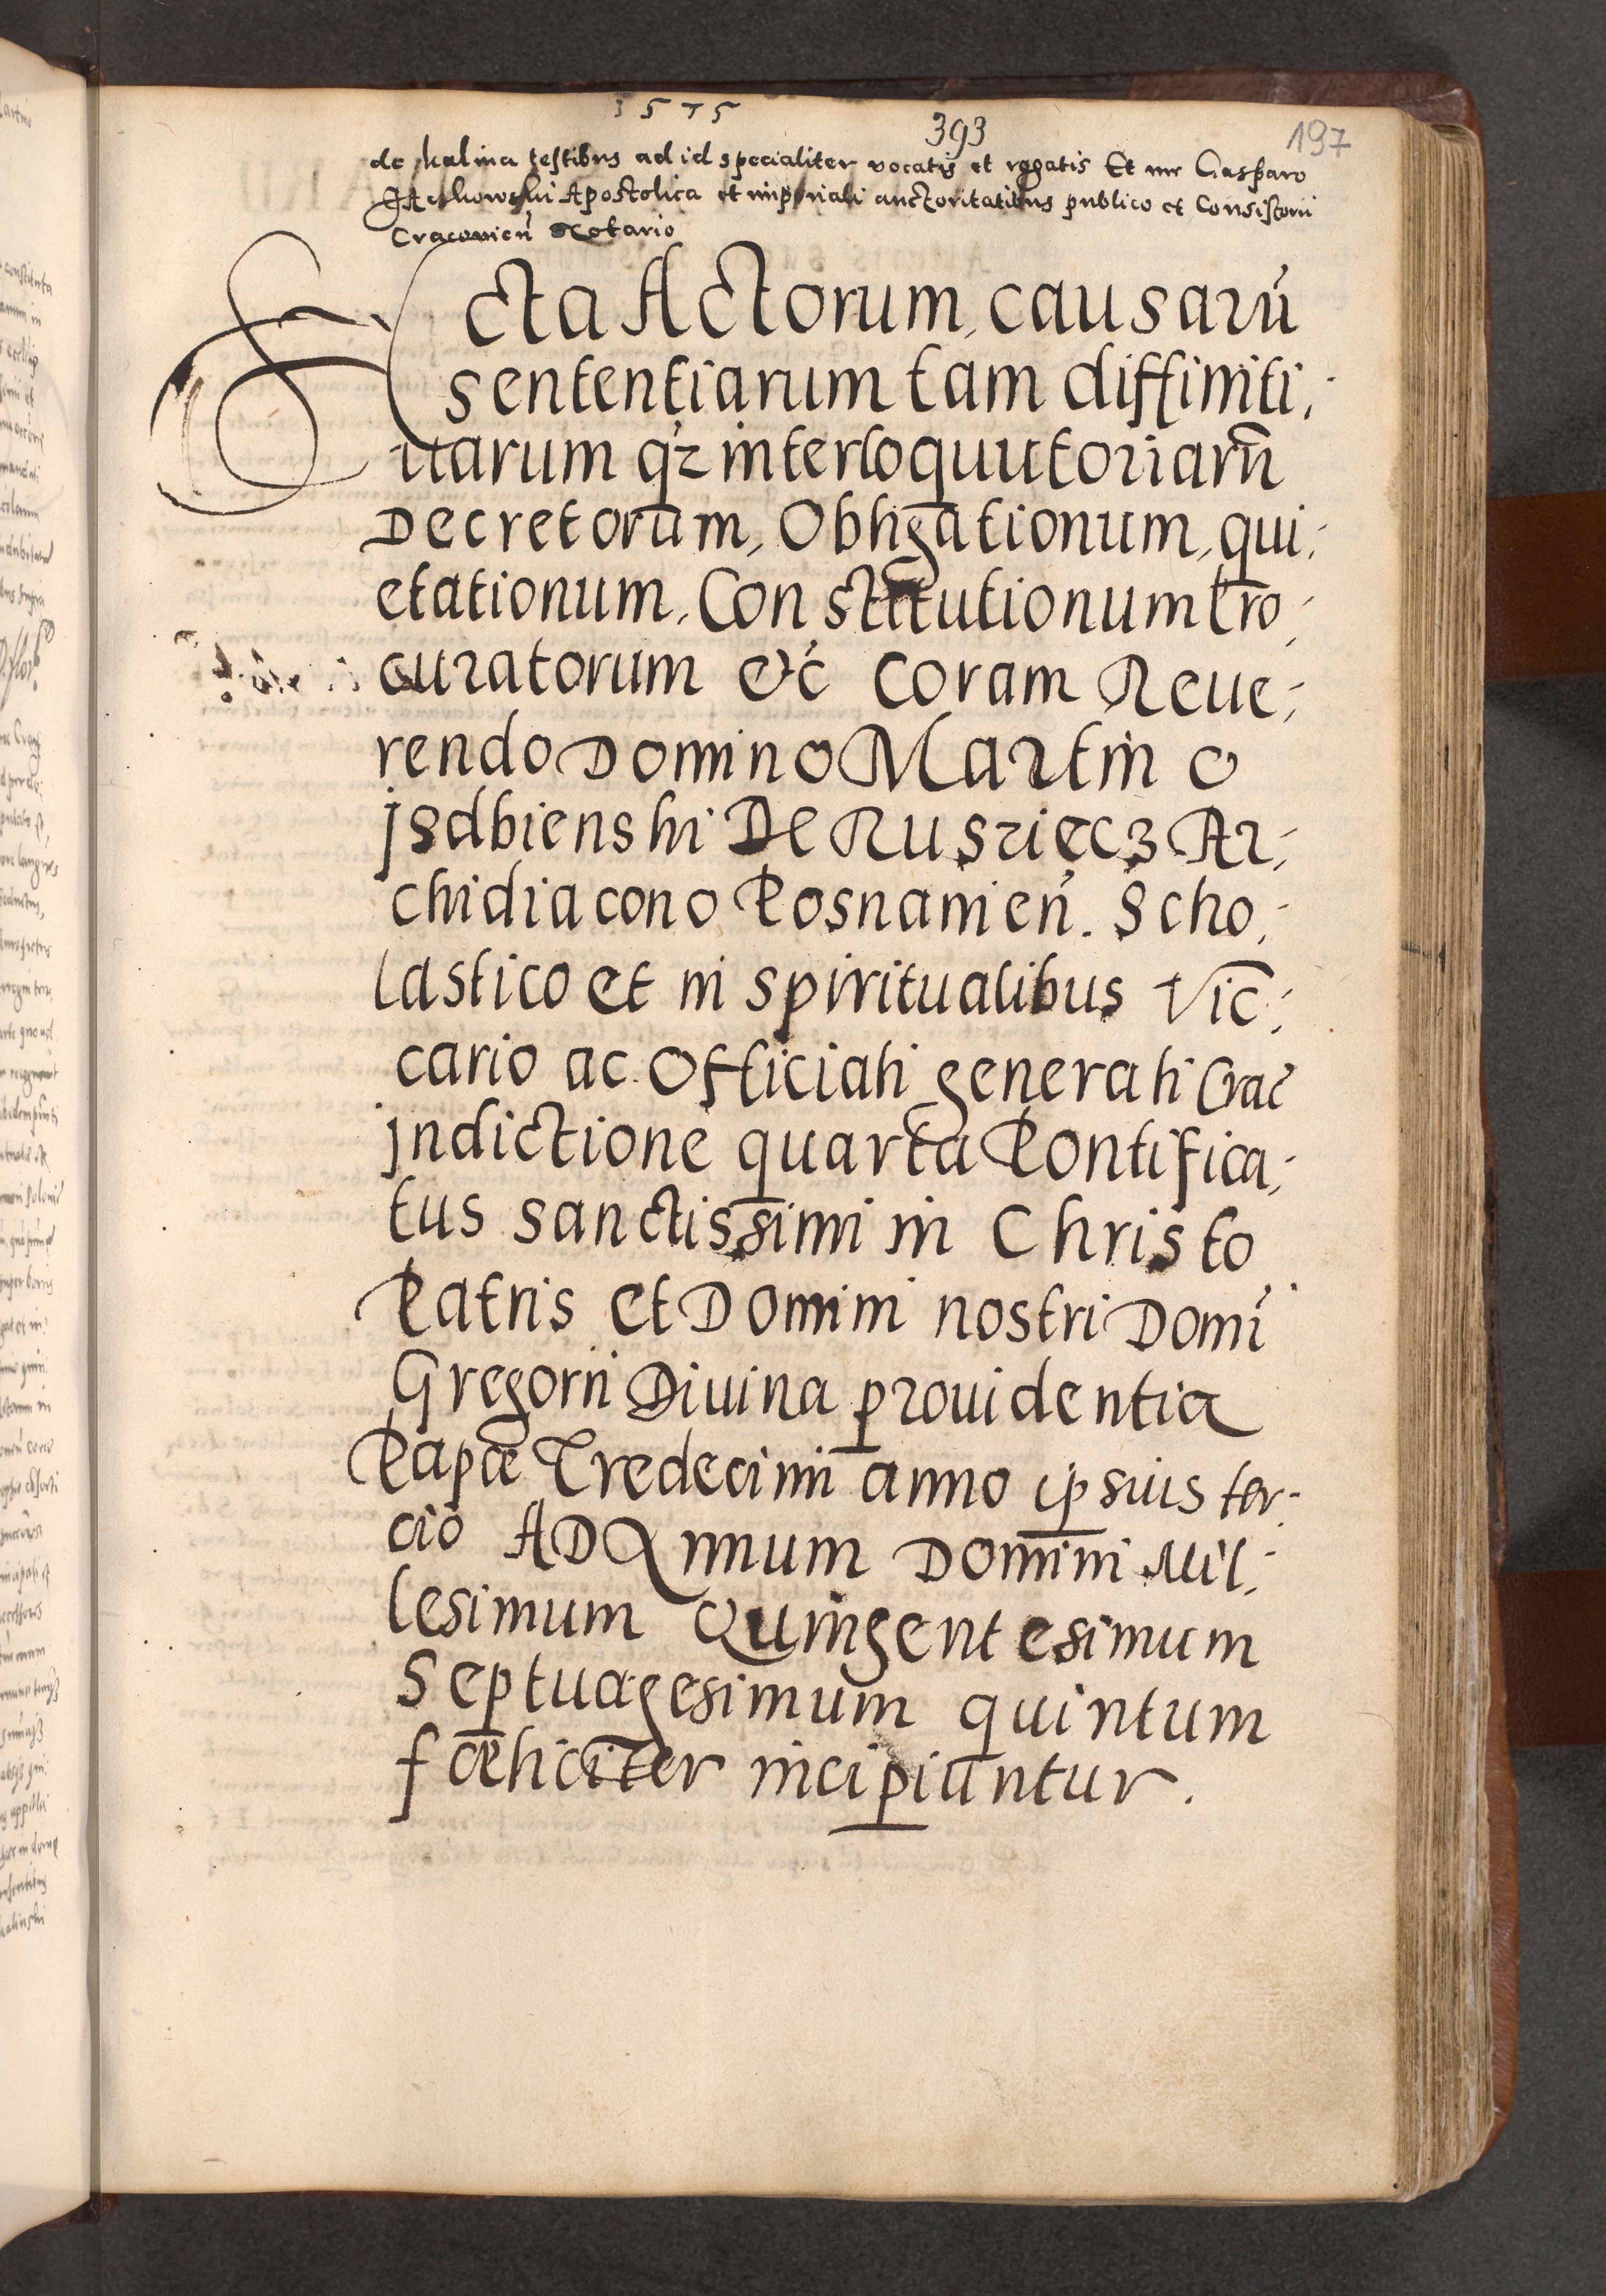 1575
393
197
de Kalina testibus ad id specialiter vocatis et rogatis Et me Gasparo
Apostolica et imperiali auctoritatibus publico et Consistorii
Cracovień Notario
Acta Actorum, causarū
sententiarum tam diffiniti,-
uarum qz interloquutoriarū
Decretorum, Obligationum, qui,-
etationum, Constitutionum Pro,-
curatorum &ć coram Reue,-
rendo Domino Martino
jsdbienski De Rusziecz Ar,-
chidiacono Posnanień. Scho,-
lastico et in spiritualibus Vic̄,-
cario ac Officiali generali Crac̄
jndictione quarta Pontifica,-
tus sanctissimi in Christo
Patris et Domini nostri Domī
Gregorii Diuina prouidentia
Papæ Tredecimi anno ipsius ter,-
cio AD Annum Domini Mil,-
lesimum Quingentesimum
Septuagesimum quintum
fœliciter incipiuntur.